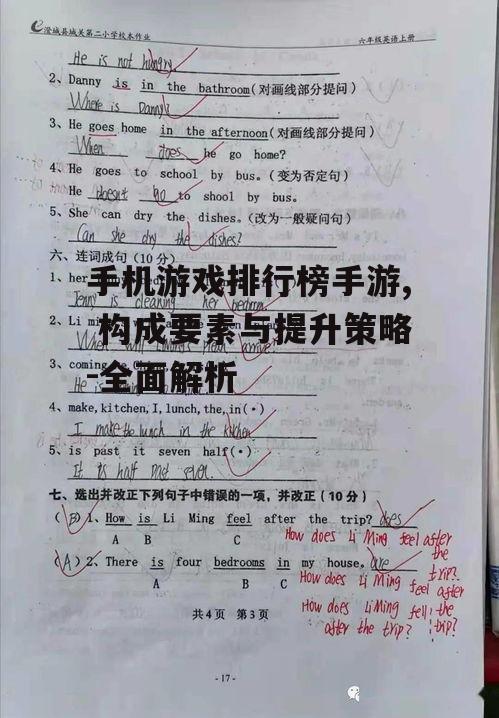 澄城县城关第二小学校本作业 六年级英语上册
He is not hungry
2、Danny is in the bathroom(对画线部分提问)
Where is Danny?
3、He goes home in the afternoon(对画线部分提问)
When does he go home?
4、He goes to school by bus.(变为否定句)
He doesn't go to shool by bus.
5、She can dry the dishes.(改为一般疑问句)
Can she dry the dishes?
六、连词成句(10分)
手机游戏排行榜手游,
1、her
Jenny is cleaning her bedroom.
构成要素与提升策略
2、Li Mi
When arrive?
-全面解析
3、coming
4、make,kitchen,I,lunch,the,in(·)
I make the lunch in the kitchen
5、is past it seven half(·)
It is half past seven.
七、选出并改正下列句子中错误的一项,并改正(10分)
(B)1、How is Li Ming feel after the trip? does
A B C
How does Li Ming feel after the trip?
(A)2、There is four bedrooms in my house. are
A B C
How does Li Ming feel after the trip?
How does Li Ming fell after the trip?
共4页 第3页
-17-